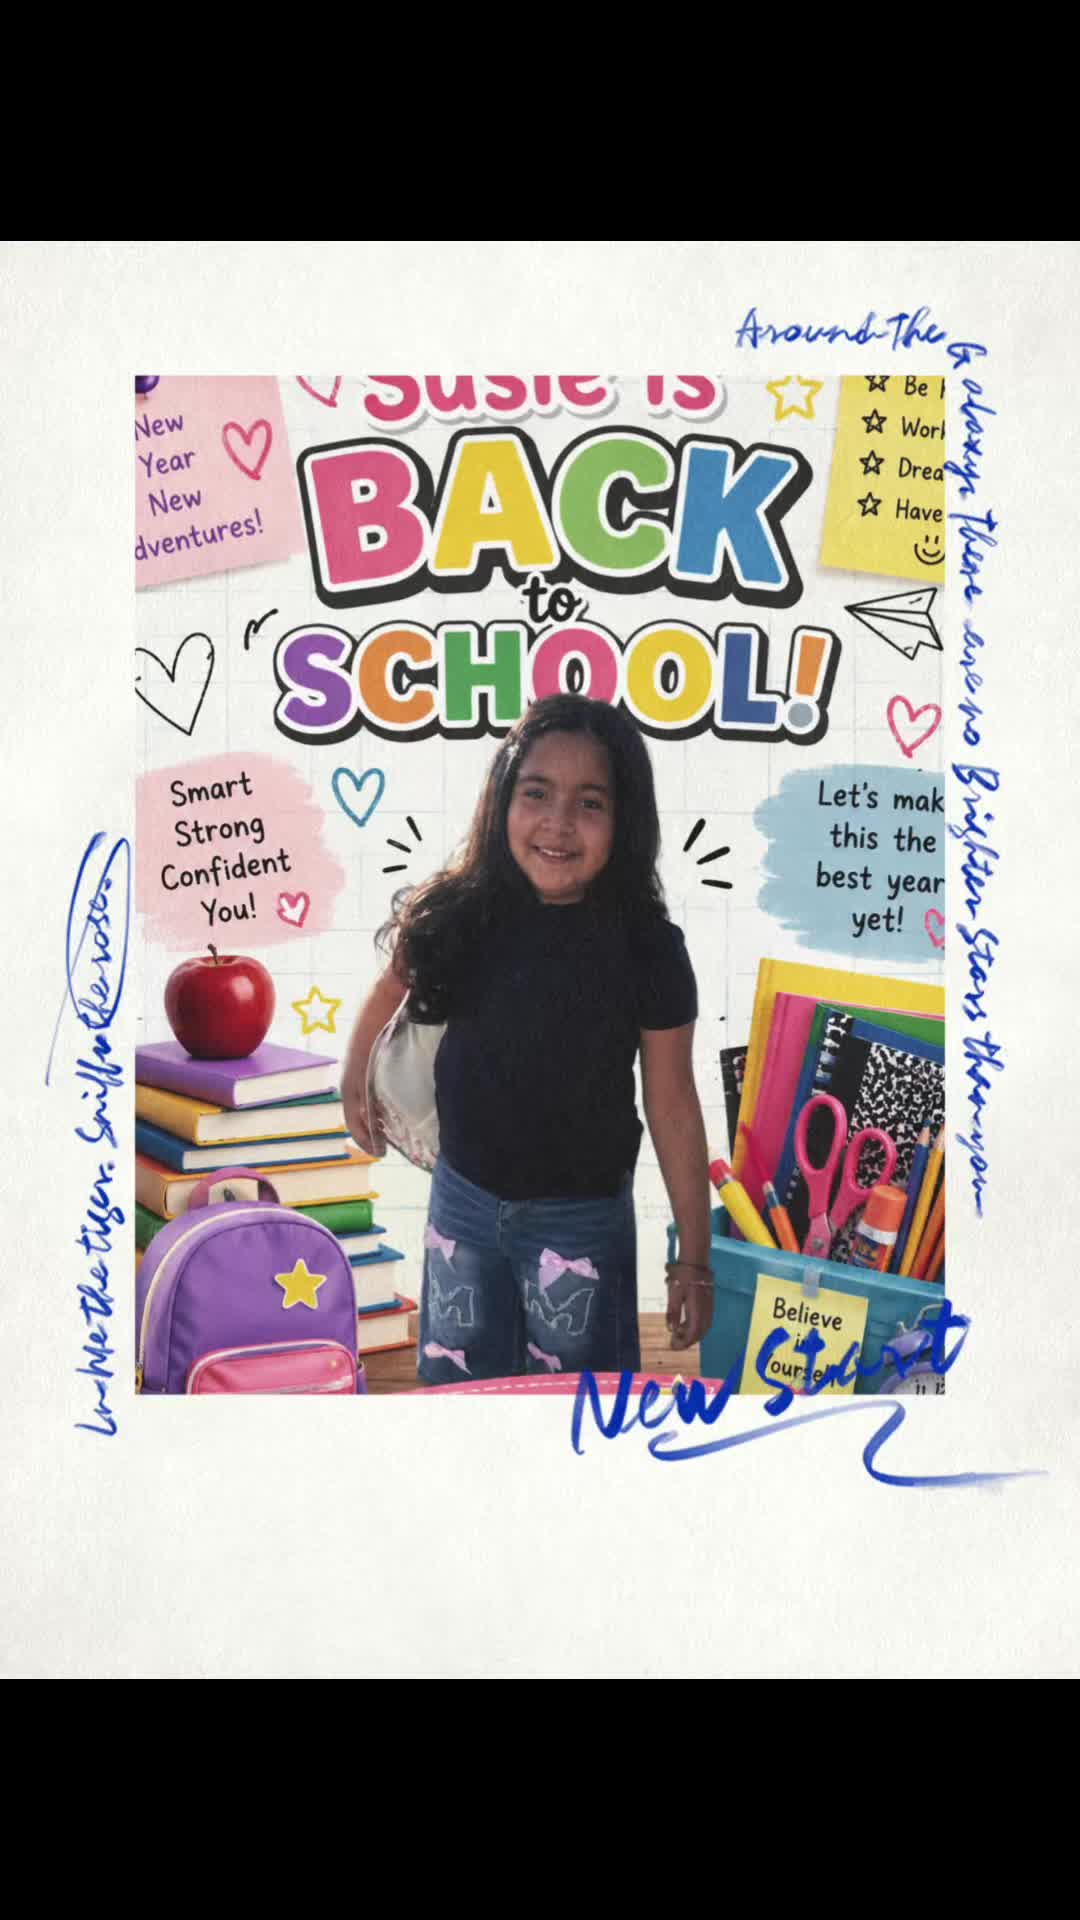 Around The
Galaxy, There are no Brighter Stars than you
Susie is
BACK
to
SCHOOL!
New
Year
New
dventures!
Be
Work
Drea
Have
Smart
Strong
Confident
You!
Let's mak
this the
best year
yet!
In Me the tiger. Sniffs the rose.
Believe
in
ourse
New Start